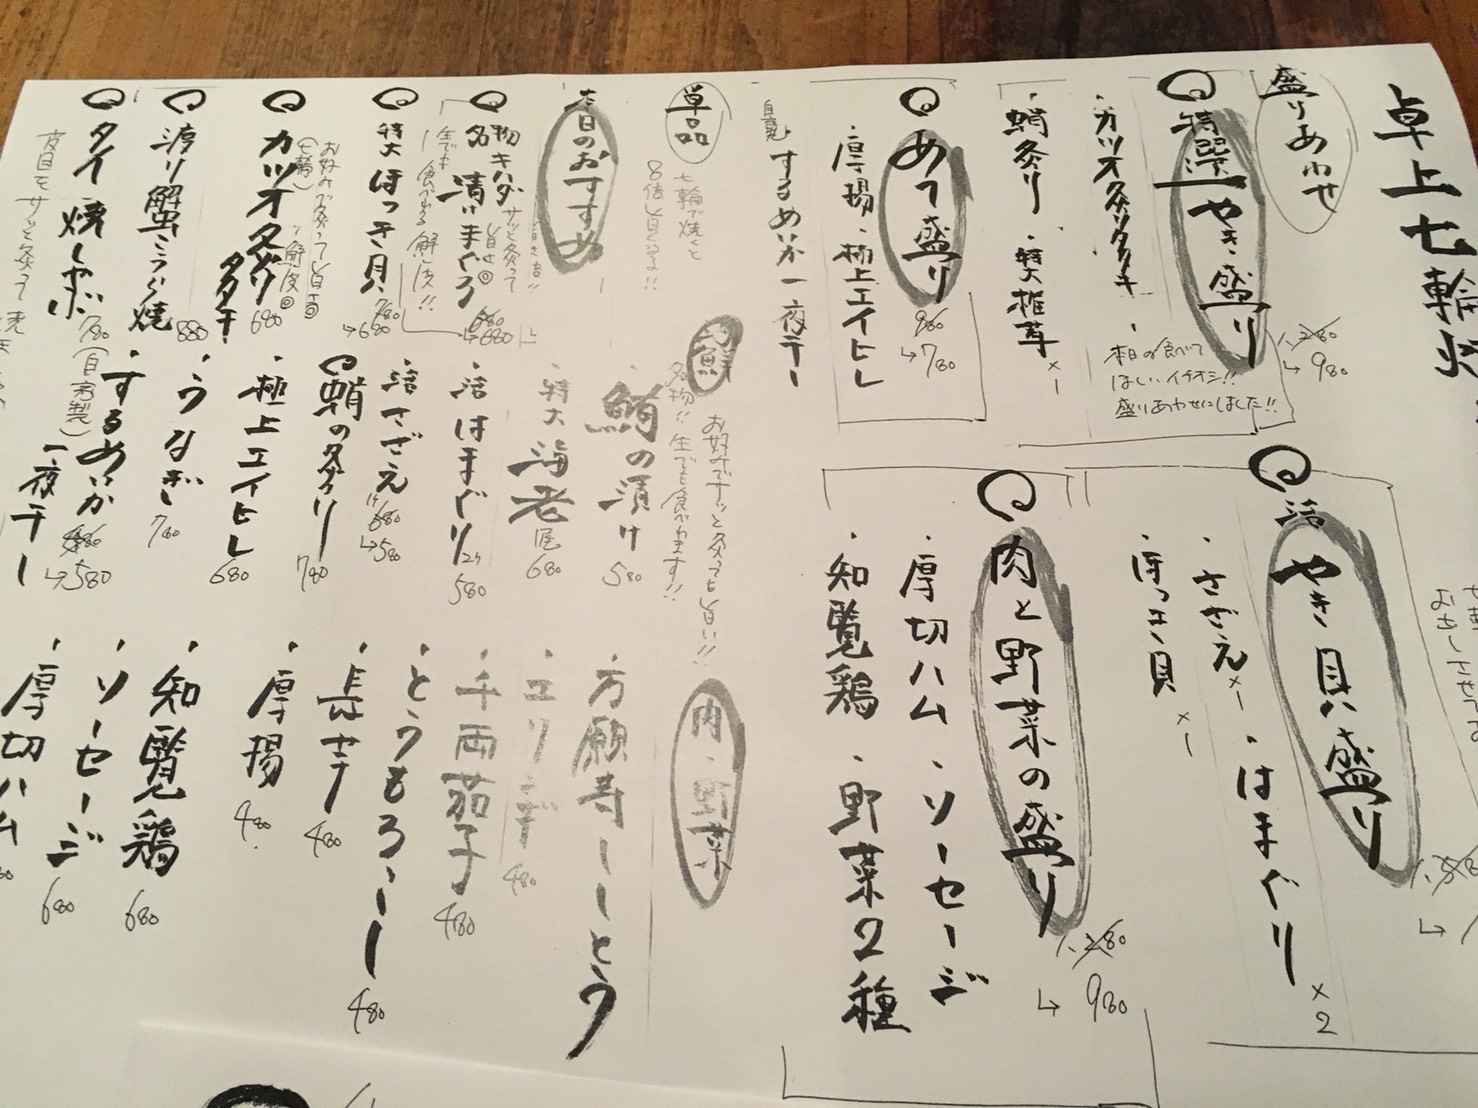 卓上七輪
盛りあわせ
特選やき盛り
1,280
→980
・カツオ炙りタタキ
・蛸炙り
・特大椎茸×1
本日の食べて
ほしいイチオシ!!
盛りあわせにしました!!
あて盛り
980
→780
・厚揚
・極上エイヒレ
するめいか一夜干
活やき貝盛り
・さざえ×1
・はまぐり×2
ほっき貝×1
肉と野菜の盛り
1,280
→980
・厚切ハム
・ソーセージ
・知覧鶏
・野菜2種
単品
七輪で焼くと
8倍旨くなる!!
本日のおすすめ
名物キハダ漬けまぐろ
680
サッと炙って
生でも食べれる鮮度!!
特大ほっき貝
780
→680
カツオ炙りタタキ
680
お好みで炙って
渡り蟹こうら焼
880
タイ焼しゃぶ
780
海鮮
お好みでサッと炙っても旨い!!
名物!!生でも食べれます!!
鮪の漬け
580
特大海老
680
・活はまぐり
580
・活さざえ
680
→580
蛸の炙り
780
・極上エイヒレ
680
・うなぎ
780
・するめいか一夜干し
(自家製)
→580
肉・野菜
・万願寺とうがらし
・エリンギ
480
・千両茄子
480
・とうもろこし
480
・長芋
480
・厚揚
480
・知覧鶏
680
・ソーセージ
680
・厚切ハム